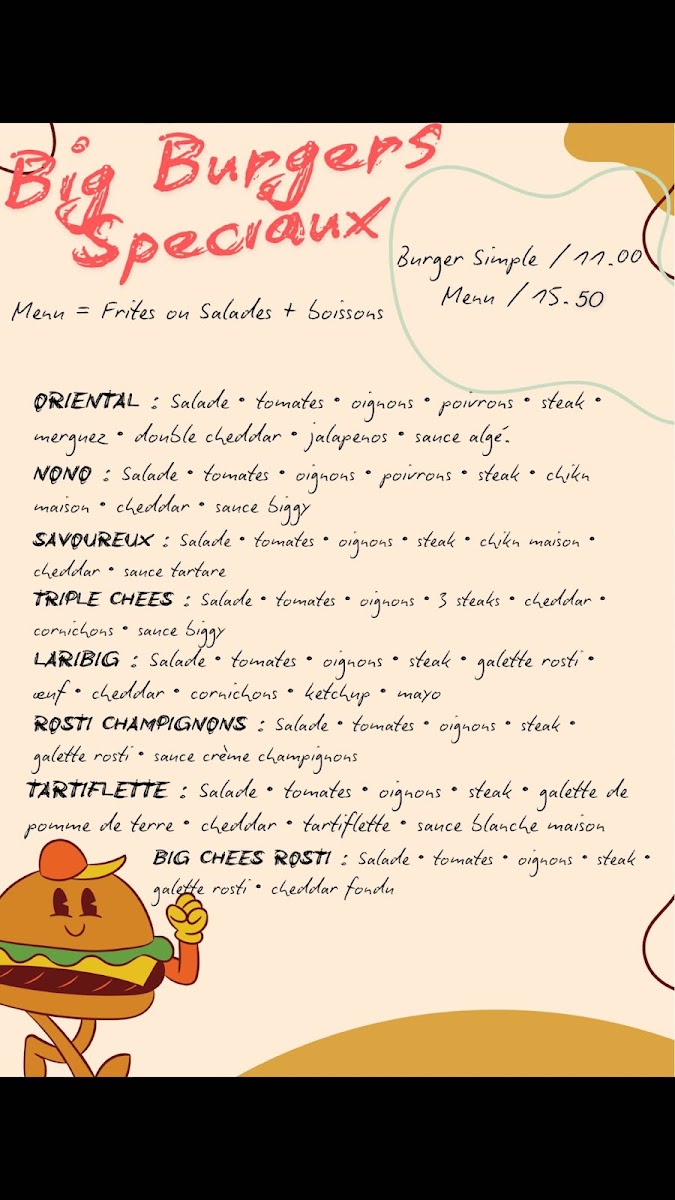 Big Burgers
Speciaux
Burger Simple / 11.00
Menu / 15.50
Menu = Frites ou Salades + boissons
ORIENTAL : Salade • tomates • oignons • poivrons • steak •
merguez • double cheddar • jalapenos • sauce algé.
NONO : Salade • tomates • oignons • poivrons • steak • chikn
maison • cheddar • sauce biggy
SAVOUREUX : Salade • tomates • oignons • steak • chikn maison •
cheddar • sauce tartare
TRIPLE CHEES : Salade • tomates • oignons • 3 steaks • cheddar •
cornichons • sauce biggy
LARIBIG : Salade • tomates • oignons • steak • galette rosti •
œuf • cheddar • cornichons • ketchup • mayo
ROSTI CHAMPIGNONS : Salade • tomates • oignons • steak •
galette rosti • sauce crème champignons
TARTIFLETTE : Salade • tomates • oignons • steak • galette de
pomme de terre • cheddar • tartiflette • sauce blanche maison
BIG CHEES ROSTI : Salade • tomates • oignons • steak •
galette rosti • cheddar fondu